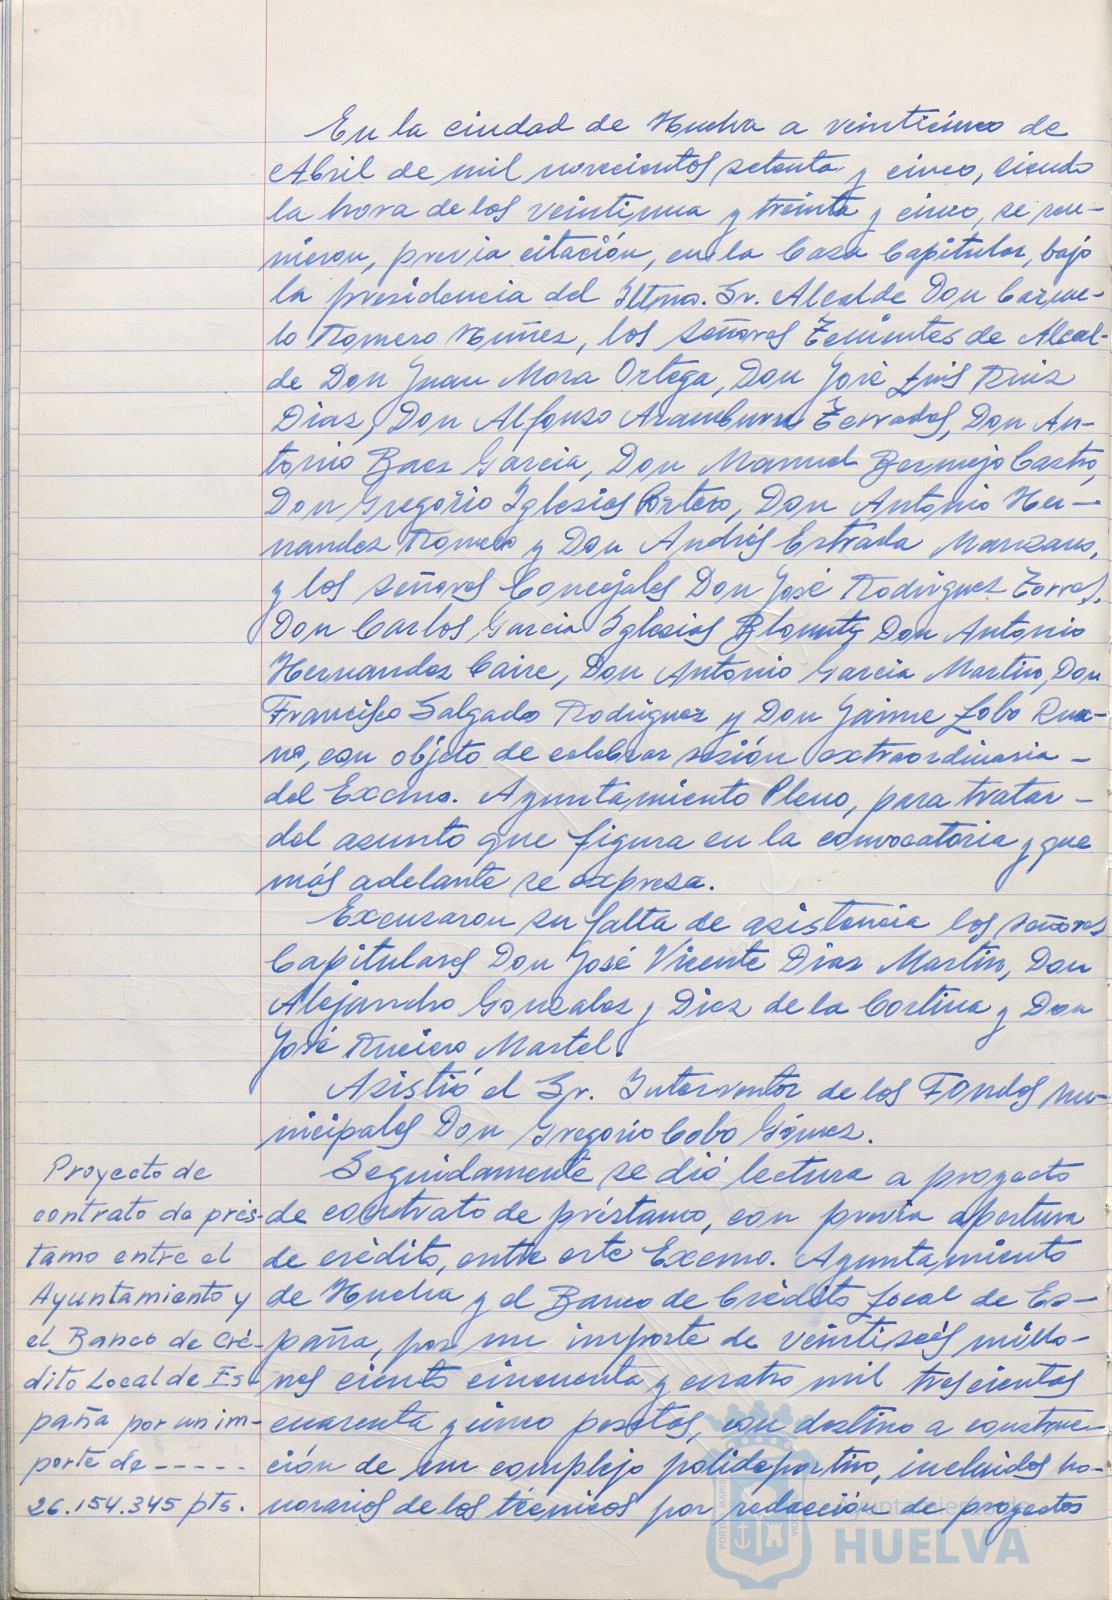 En la ciudad de Huelva a veinticinco de
Abril de mil novecientos setenta y cinco, siendo
la hora de los veintiuna y treinta y cinco, se reu-
nieron, previa citación, en la Casa Capitular, bajo
la presidencia del Iltmo. Sr. Alcalde Don Carme-
lo Romero Núñez, los señores Tenientes de Alcal-
de Don Juan Mora Ortega, Don José Luis Ruiz
Díaz, Don Alfonso Aramburu Terrades, Don An-
tonio Baez Garcia, Don Manuel Bermejo Castro,
Don Gregorio Iglesias Portero, Don Antonio Her-
nandez Romero y Don Andrés Estrada Manzano,
y los señores Concejales Don José Rodriguez Torres,
Don Carlos Garcia Iglesias Don Antonio
Hernandez Caire, Don Antonio Garcia Martin, Don
Francisco Salgado Rodriguez y Don Jaime Lobo Rua-
no, con objeto de celebrar sesión extraordinaria -
del Excmo. Ayuntamiento Pleno, para tratar -
del asunto que figura en la convocatoria y que
más adelante se expresa.
Excusaron su falta de asistencia los señores
Capitulares Don José Vicente Diaz Martin, Don
Alejandro Gonzalez y Diez de la Cortina y Don
José Martel.
Asistió el Sr. Interventor de los Fondos mu-
nicipales Don Gregorio Cobo Gómez.
Seguidamente se dió lectura a proyecto
de contrato de préstamo, con previa apertura
de crédito, entre este Excmo. Ayuntamiento
de Huelva y el Banco de Crédito Local de Es-
paña, por un importe de veintiseis millo-
nes ciento cincuenta y cuatro mil trescientas
cuarenta y cinco pesetas, con destino a construc-
ción de un complejo polideportivo, incluidos ho-
norarios de los técnicos por redacción de proyectos
Proyecto de
contrato de prés-
tamo entre el
Ayuntamiento y
el Banco de Cré-
dito Local de Es-
paña por un im-
porte de -----
26.154.345 pts.
Ayuntamiento de
HUELVA